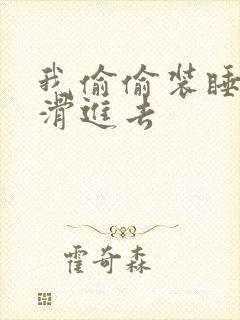 我偷偷装睡
滑進去
霍奇森